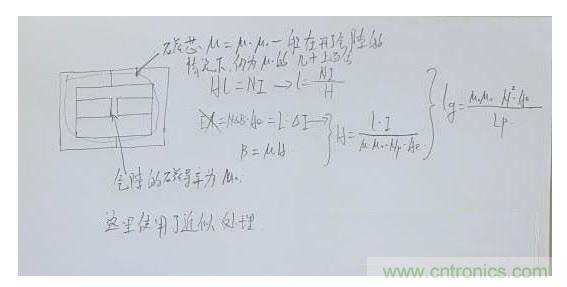 磁芯 μ = μ·μ₀ 一般在开了气隙的
情况下,仍为 μ₀的几十上百倍
Hl = NI → l = NI/H
= N·ΔB·Ae = L·ΔI →
B = μH
H = L·I/(μ·μ₀·Np·Ae)
lg = μ₀μ₀ N²·Ae/Lp
气隙的磁导率为 μ₀
这里使用了近似处理
www.cntronics.com